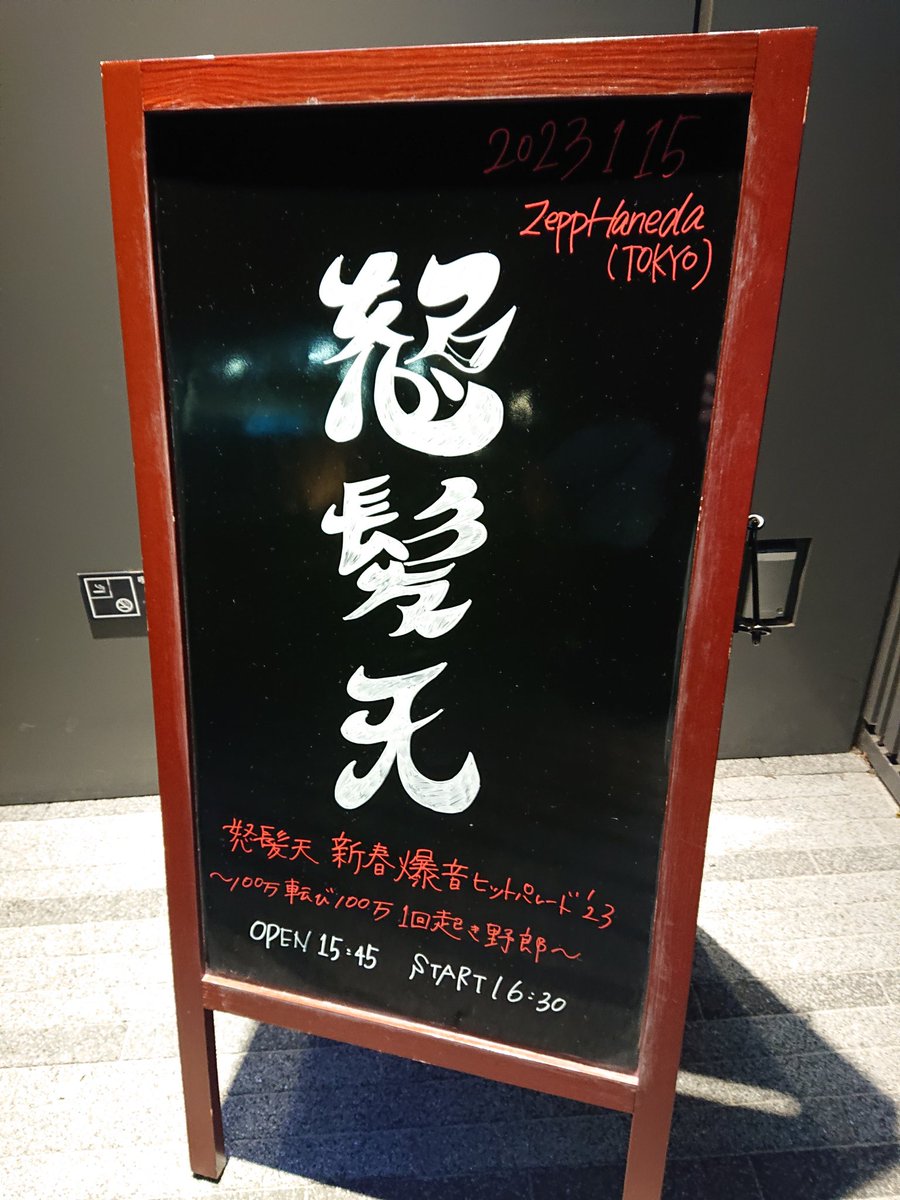 2023 1 15
ZeppHaneda
(TOKYO)
怒髪天
怒髪天 新春爆音ヒットパレード'23
〜100万転び100万1回起き野郎〜
OPEN 15:45 START 16:30